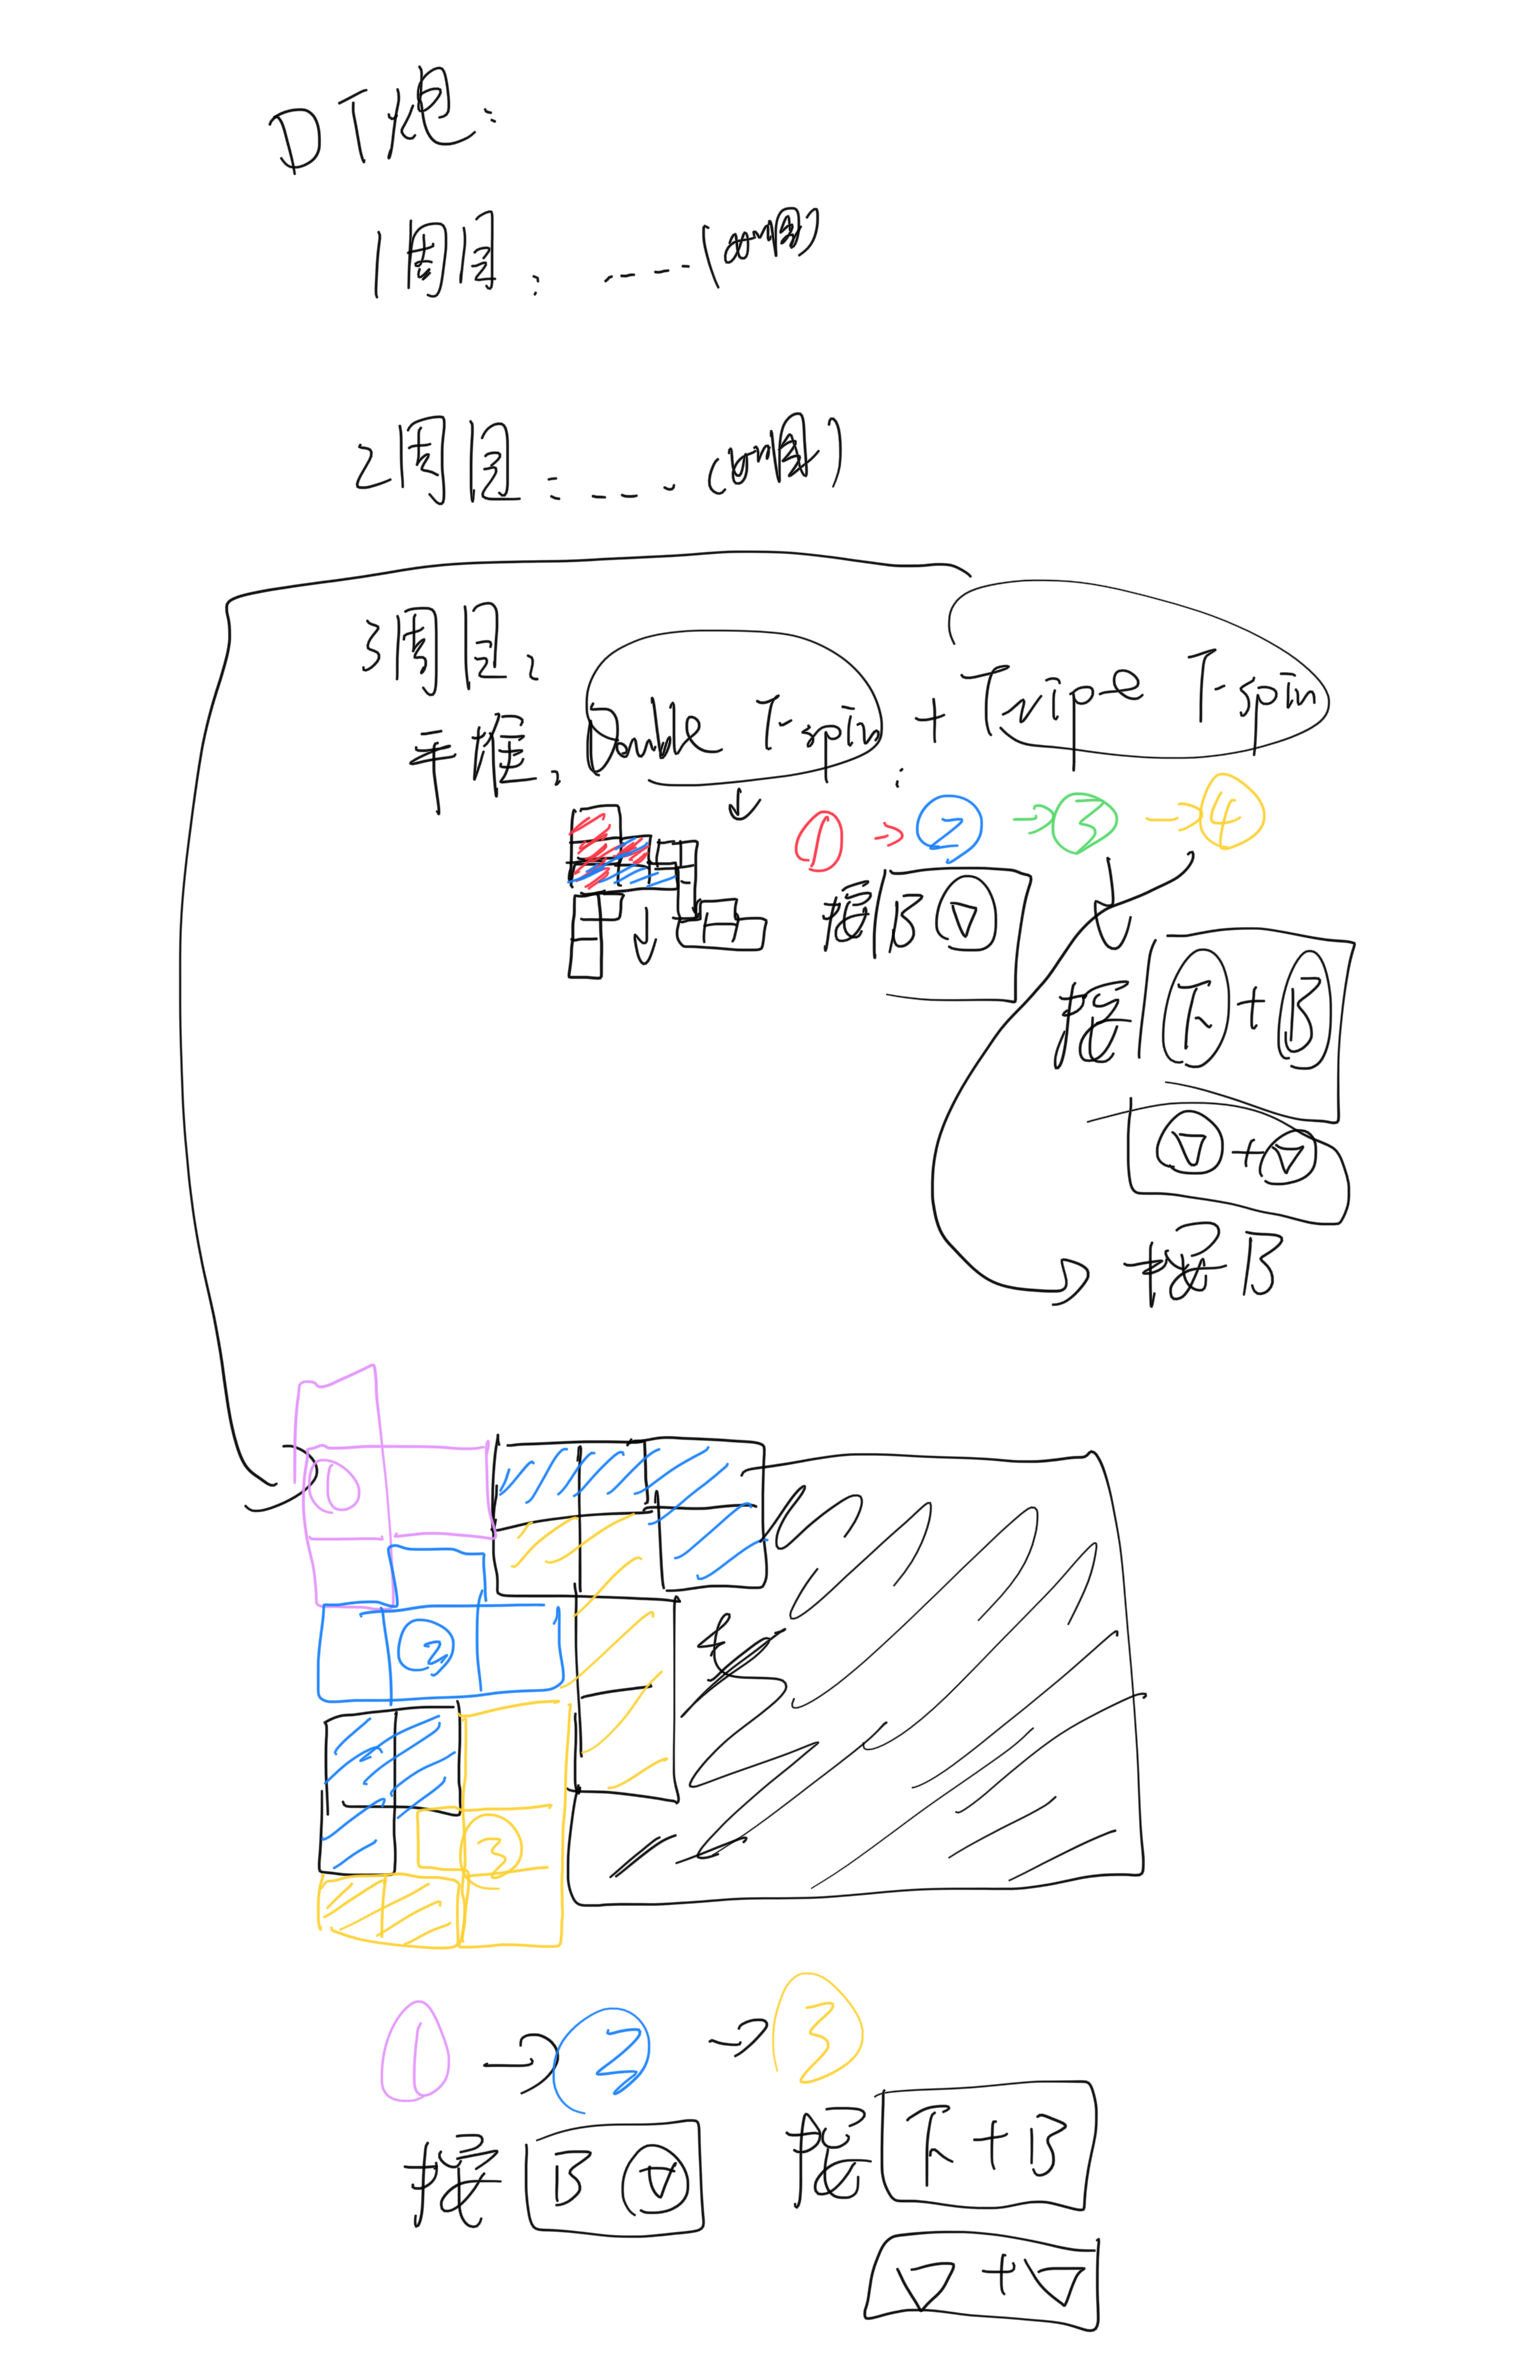 DT炮:
1周目: ----(
2周目: ----(
3周目:
手推: Double T-spin + Triple T-spin
① → ② → ③ → ④
按 B ▽
按 下 + B
▽ + ▽
按 B
①
②
③
① → ② → ③
按 B ▽
按 下 + B
▽ + ▽